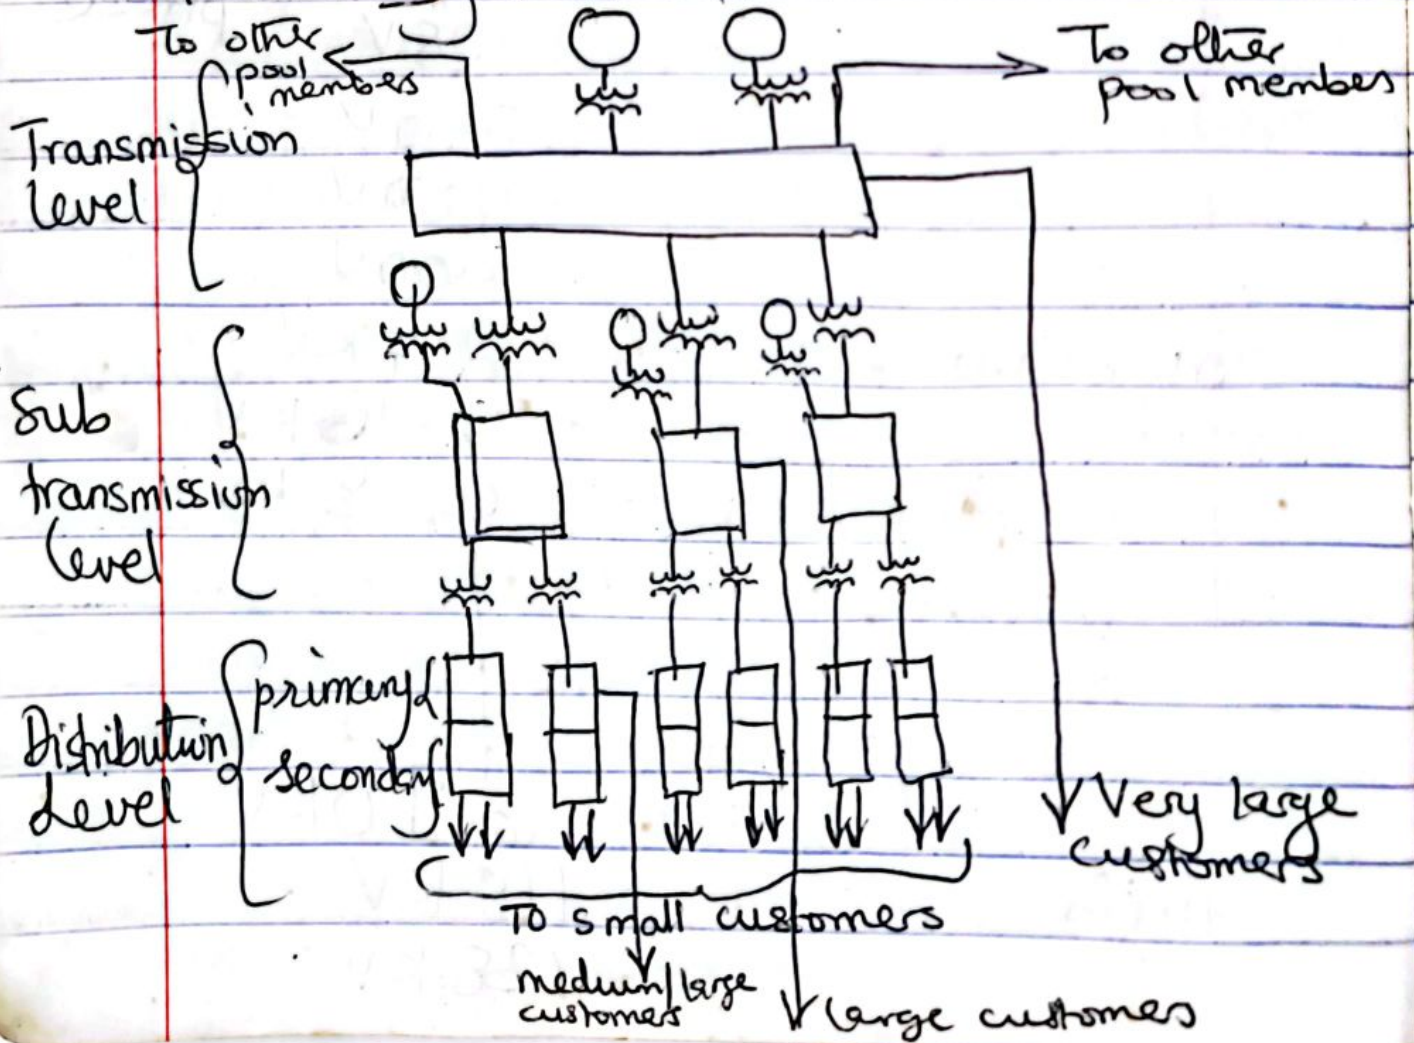 To other
pool
members
To other
pool members
Transmission
level
Sub
transmission
level
Distribution
Level
primary
seconday
Very large
customers
To small customers
medium/large
customers
large customers